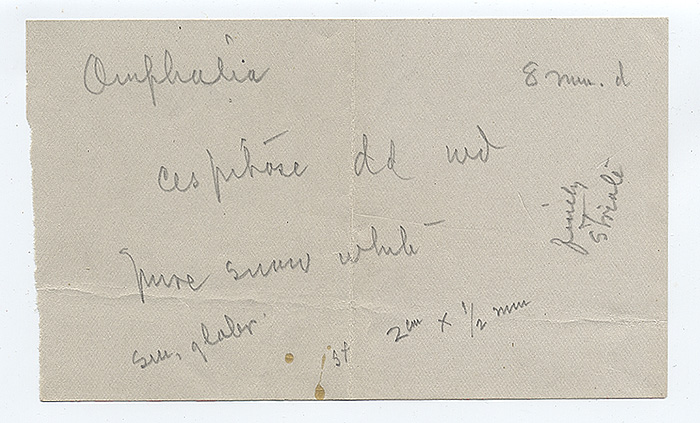 Omphalia 8 mm. d
cespitose dd wd
finely
striate
pure snow white
sm, glabr.
st 2cm x 1/2 mm